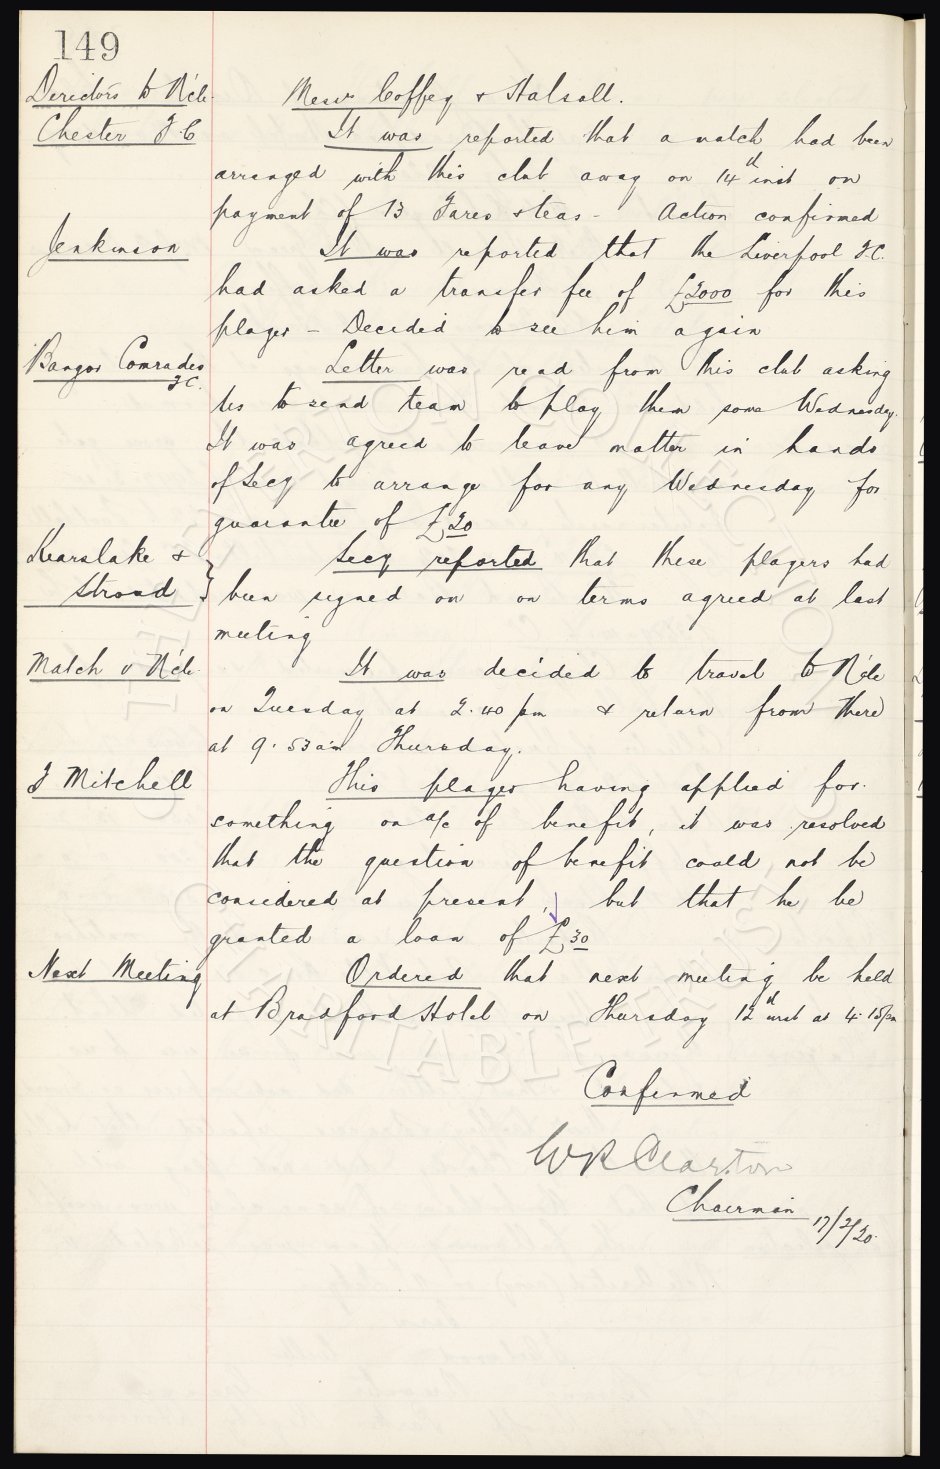 149
Directors to N'cle. Messrs Coffey & Halsall.
Chester F.C It was reported that a match had been
arranged with this club away on 14th inst on
payment of 13 Fares & teas - Action confirmed
Jenkinson It was reported that the Liverpool F.C.
had asked a transfer fee of £2000 for this
player - Decided to see him again
Bangor Comrades F.C. Letter was read from this club asking
us to send team to play them some Wednesday.
It was agreed to leave matter in hands
of Secy to arrange for any Wednesday for
guarantee of £20
Kearslake & Secy reported that these players had
Stroud } been signed on on terms agreed at last
meeting
Match v N'cle. It was decided to travel to N'cle
on Tuesday at 2.40 pm & return from there
at 9.53 am Thursday.
J Mitchell This player having applied for
something on a/c of benefit, it was resolved
that the question of benefit could not be
considered at present, but that he be
granted a loan of £30
Next Meeting Ordered that next meeting be held
at Bradford Hotel on Thursday 12th inst at 4.15pm
Confirmed
W R Clayton
Chairman
17/2/20.
EVERTON COLLECTION
CHARITABLE TRUST